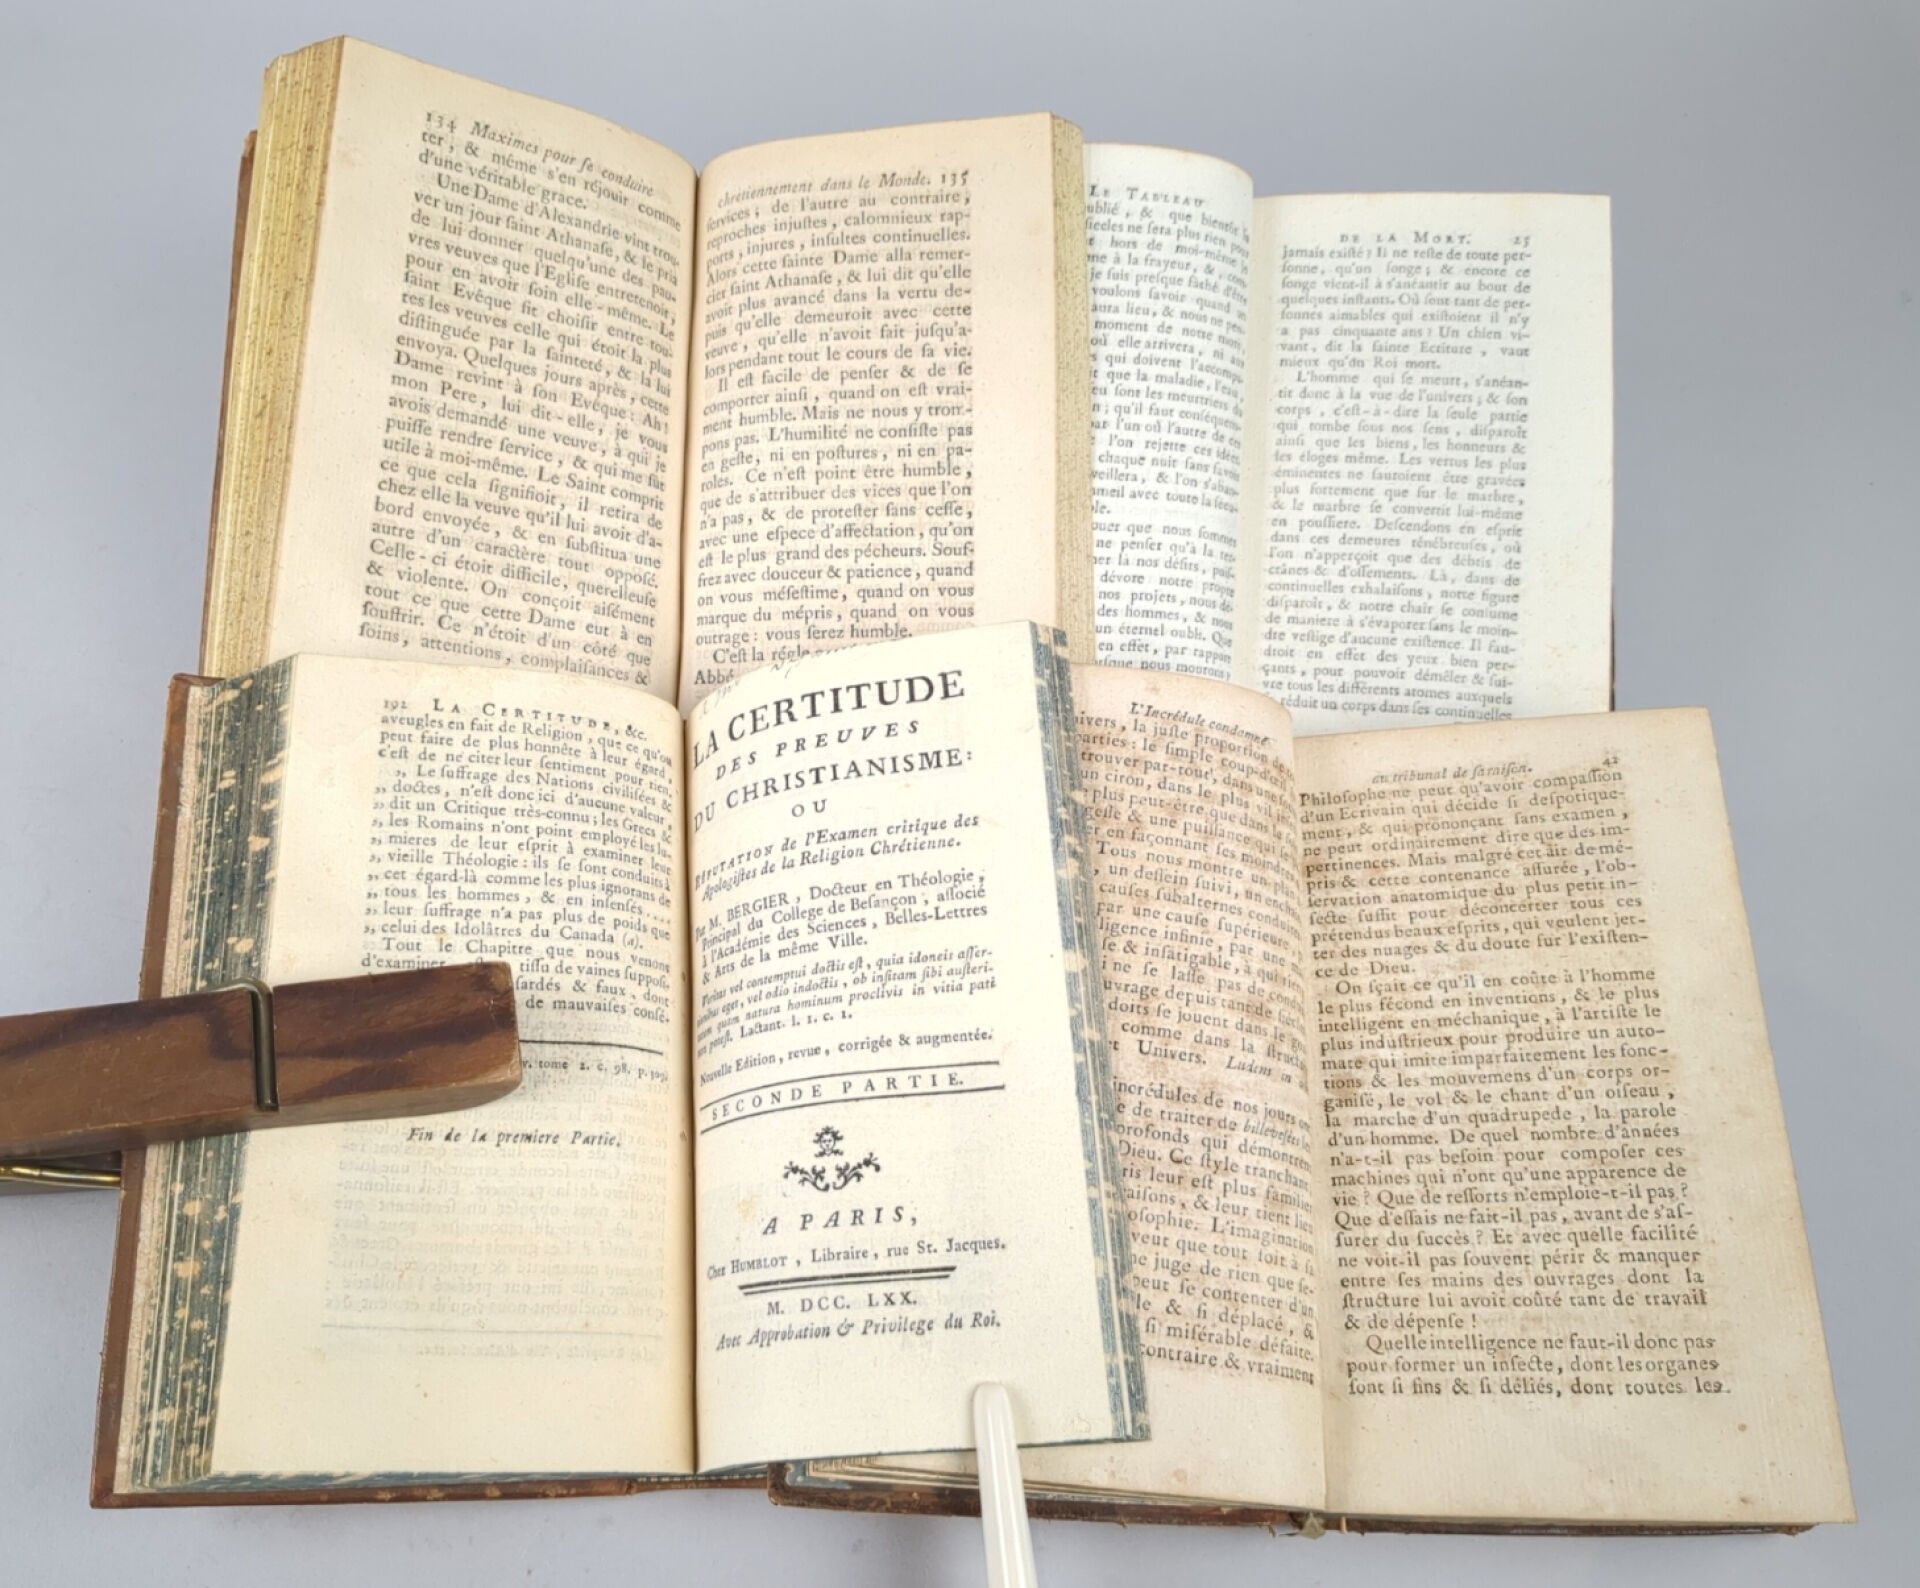 134 Maximes pour ſe conduire
ter, & même s'en réjouir comme
d'une véritable grace.
Une Dame d'Alexandrie vint trou-
ver un jour ſaint Athanaſe, & le pria
de lui donner quelqu'une des pau-
vres veuves que l'Egliſe entretenoit,
pour en avoir ſoin elle-même. Le
ſaint Evêque fit choiſir entre tou-
tes les veuves celle qui étoit la plus
diſtinguée par la ſainteté, & la lui
envoya. Quelques jours après, cette
Dame revint à ſon Evêque: Ah!
mon Pere, lui dit-elle, je vous
avois demandé une veuve, à qui je
puiſſe rendre ſervice, & qui me fût
utile à moi-même. Le Saint comprit
ce que cela ſignifioit, il retira de
chez elle la veuve qu'il lui avoit d'a-
bord envoyée, & en ſubſtitua une
autre d'un caractère tout oppoſé.
Celle-ci étoit difficile, querelleuſe
& violente. On conçoit aiſément
tout ce que cette Dame eut à en
ſouffrir. Ce n'étoit d'un côté que
ſoins, attentions, complaiſances &
chrétiennement dans le Monde. 135
ſervices; de l'autre au contraire,
reproches injuſtes, calomnieux rap-
ports, injures, inſultes continuelles.
Alors cette ſainte Dame alla remer-
cier ſaint Athanaſe, & lui dit qu'elle
avoit plus avancé dans la vertu de-
puis qu'elle demeuroit avec cette
veuve, qu'elle n'avoit fait juſqu'a-
lors pendant tout le cours de ſa vie.
Il eſt facile de penſer & de ſe
comporter ainſi, quand on eſt vrai-
ment humble. Mais ne nous y trom-
pons pas. L'humilité ne conſiſte pas
en geſte, ni en poſtures, ni en pa-
roles. Ce n'eſt point être humble,
que de s'attribuer des vices que l'on
n'a pas, & de proteſter ſans ceſſe,
avec une eſpece d'affectation, qu'on
eſt le plus grand des pécheurs. Souf-
frez avec douceur & patience, quand
on vous méſeſtime, quand on vous
marque du mépris, quand on vous
outrage: vous ſerez humble.
C'eſt la régle
Abbé
LE TABLEAU
ublié, & que bientôt
ſiecles ne ſera plus rien pour
hors de moi-même
ne à la frayeur, &
je ſuis preſque fâché d'être
voulons ſavoir quand
aura lieu, & nous ne
moment de notre mort,
où elle arrivera, ni
qui doivent l'accomp-
que la maladie, l'eau,
ſont les meurtriers
; qu'il faut conſéquem-
par l'un où l'autre de ces
l'on rejette ces idées
chaque nuit ſans ſavoir
veillera, & l'on s'aban-
avec toute la ſécu-
que nous ſommes
ne penſer qu'à la
là nos déſirs,
dévore notre propre
nos projets, nous
des hommes, & nous
un éternel oubli. Que
en effet, par rapport
que nous mourons?
DE LA MORT. 25
jamais exiſté? Il ne reſte de toute per-
ſonne, qu'un ſonge; & encore ce
ſonge vient-il à s'anéantir au bout de
quelques inſtants. Où ſont tant de per-
ſonnes aimables qui exiſtoient il n'y
a pas cinquante ans? Un chien vi-
vant, dit la ſainte Ecriture, vaut
mieux qu'un Roi mort.
L'homme qui ſe meurt, s'anéan-
tit donc à la vue de l'univers; & ſon
corps, c'eſt-à-dire la ſeule partie
qui tombe ſous nos ſens, diſparoît
ainſi que les biens, les honneurs &
les éloges même. Les vertus les plus
éminentes ne ſauroient être gravées
plus fortement que ſur le marbre,
& le marbre ſe convertit lui-même
en pouſſiere. Deſcendons en eſprit
dans ces demeures ténébreuſes, où
l'on n'apperçoit que des débris de
crânes & d'oſſements. Là, dans de
continuelles exhalaiſons, notre figure
diſparoît, & notre chair ſe conſume
de maniere à s'évaporer ſans le moin-
dre veſtige d'aucune exiſtence. Il fau-
droit en effet des yeux bien per-
çants, pour pouvoir démêler & ſui-
vre tous les différents atomes auxquels
réduit un corps dans ſes continuelles
192 LA CERTITUDE, &c.
aveugles en fait de Religion, que ce qu'on
peut faire de plus honnête à leur égard,
c'eſt de ne citer leur ſentiment pour rien.
„ Le ſuffrage des Nations civiliſées &
„ doctes, n'eſt donc ici d'aucune valeur,
„ dit un Critique très-connu; les Grecs &
„ les Romains n'ont point employé les lu-
„ mieres de leur eſprit à examiner leur
„ vieille Théologie: ils ſe ſont conduits à
„ cet égard-là comme les plus ignorans de
„ tous les hommes, & en inſenſés....
„ leur ſuffrage n'a pas plus de poids que
„ celui des Idolâtres du Canada (a).
Tout le Chapitre que nous venons
d'examiner tiſſu de vaines ſuppoſi-
ſardés & faux, dont
de mauvaiſes conſé-
tome 2. c. 98. p. 309.
Fin de la premiere Partie.
LA CERTITUDE
DES PREUVES
DU CHRISTIANISME:
OU
RÉFUTATION de l'Examen critique des
Apologiſtes de la Religion Chrétienne.
Par M. BERGIER, Docteur en Théologie,
Principal du College de Beſançon, aſſocié
à l'Académie des Sciences, Belles-Lettres
& Arts de la même Ville.
Veritas vel contemptui doctis eſt, quia idoneis aſſer-
toribus eget, vel odio indoctis, ob inſitam ſibi auſteri-
tatem quam natura hominum proclivis in vitia pati
non poteſt. Lactant. l. 1. c. 1.
Nouvelle Edition, revue, corrigée & augmentée.
SECONDE PARTIE.
A PARIS,
Chez HUMBLOT, Libraire, rue St. Jacques.
M. DCC. LXX.
Avec Approbation & Privilege du Roi.
L'Incrédule condamné
nivers, la juſte proportion de
parties: le ſimple coup-d'œil
trouver par-tout, dans une
un ciron, dans le plus vil inſ-
plus peut-être, que dans le
geſſe & une puiſſance qui ſe
en façonnant ſes moindres
Tous nous montre un plan
, un deſſein ſuivi, un enchaî-
cauſes ſubalternes conduites
par une cauſe ſupérieure,
ligence infinie, par une
& infatigable, à qui rien
ne ſe laſſe pas de conduire
ouvrage depuis tant de ſiecles
doits ſe jouent dans le
comme dans la ſtructure
Univers. Ludens in
incrédules de nos jours ont
de traiter de billeveſées les
profonds qui démontrent
Dieu. Ce ſtyle tranchant
leur eſt plus familier
raiſons, & leur tient lieu
oſophie. L'imagination
veut que tout ſoit à ſa
juge de rien que ſe-
peut ſe contenter d'un
& ſi déplacé, &
ſi miſérable défaite.
contraire & vraiment
au tribunal de ſa raiſon. 41
Philoſophe ne peut qu'avoir compaſſion
d'un Ecrivain qui décide ſi deſpotique-
ment, & qui prononçant ſans examen,
ne peut ordinairement dire que des im-
pertinences. Mais malgré cet air de mé-
pris & cette contenance aſſurée, l'ob-
ſervation anatomique du plus petit in-
ſecte ſuffit pour déconcerter tous ces
prétendus beaux eſprits, qui veulent jet-
ter des nuages & du doute ſur l'exiſten-
ce de Dieu.
On ſçait ce qu'il en coûte à l'homme
le plus fécond en inventions, & le plus
intelligent en méchanique, à l'artiſte le
plus induſtrieux pour produire un auto-
mate qui imite imparfaitement les fonc-
tions & les mouvemens d'un corps or-
ganiſé, le vol & le chant d'un oiſeau,
la marche d'un quadrupede, la parole
d'un homme. De quel nombre d'années
n'a-t-il pas beſoin pour compoſer ces
machines qui n'ont qu'une apparence de
vie? Que de reſſorts n'emploie-t-il pas?
Que d'eſſais ne fait-il pas, avant de s'aſ-
ſurer du ſuccès? Et avec quelle facilité
ne voit-il pas ſouvent périr & manquer
entre ſes mains des ouvrages dont la
ſtructure lui avoit coûté tant de travail
& de dépenſe!
Quelle intelligence ne faut-il donc pas
pour former un inſecte, dont les organes
ſont ſi fins & ſi déliés, dont toutes les